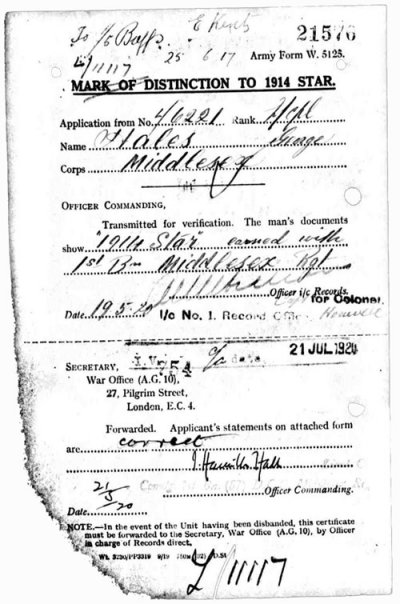 To i/c Baffs E Kents 21576
25 6 17 Army Form W. 5125.
L/11117
MARK OF DISTINCTION TO 1914 STAR.
Application from No. 46221 Rank
Name Hales George
Corps Middlesex
OFFICER COMMANDING,
Transmitted for verification. The man's documents
show "1914 Star" earned with
1st Bn Middlesex Rgt
Officer i/c Records.
for Colonel
Date 19.5.20 I/c No. 1. Record Office Hounslow
21 JUL 1920
SECRETARY, I.V. 754
War Office (A.G. 10),
27, Pilgrim Street,
London, E.C. 4.
Forwarded. Applicant's statements on attached form
are correct
J. Hamilton Hall
Officer Commanding.
Date 21/5/20
NOTE.—In the event of the Unit having been disbanded, this certificate
must be forwarded to the Secretary, War Office (A.G. 10), by Officer
in charge of Records direct.
L/11117